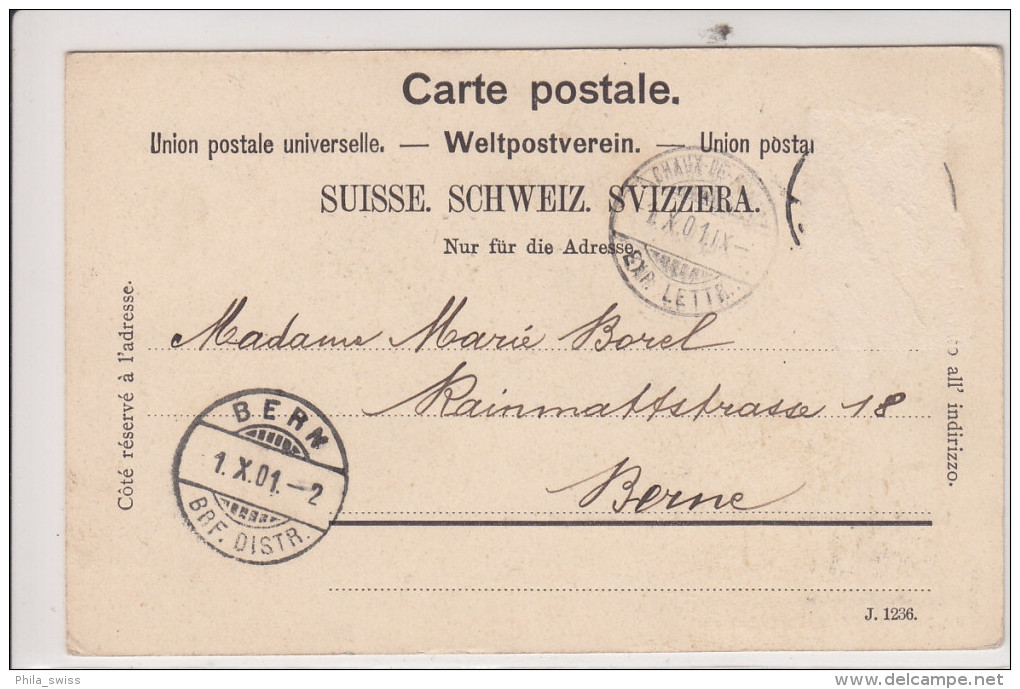 Carte postale.
Union postale universelle. — Weltpostverein. — Union posta
SUISSE. SCHWEIZ. SVIZZERA.
Nur für die Adresse
CHAUX-DE-
1.X.01.IX-
EXP. LETTR.
Côté réservé à l'adresse.
all' indirizzo.
Madame Marie Borel
Rainmattstrasse 18
Berne
BERN
1.X.01.-2
BRF. DISTR.
J. 1236.
Phila_swiss
delcampe.net